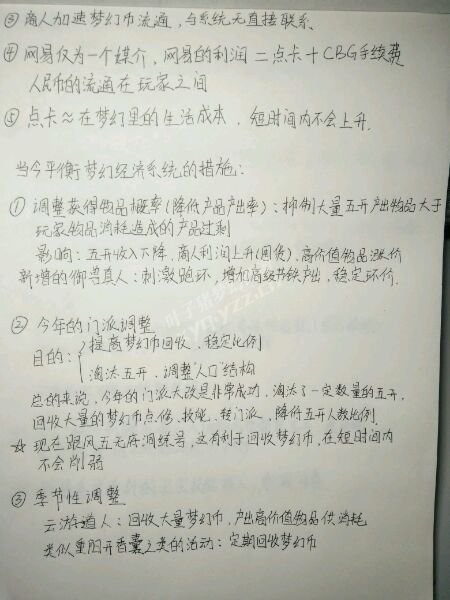 ③ 商人加速梦幻币流通，与系统无直接联系.
④ 网易仅为一个媒介，网易的利润 = 点卡 + CBG手续费
人民币的流通在玩家之间
⑤ 点卡 ≈ 在梦幻里的生活成本，短时间内不会上升.
当今平衡梦幻经济系统的措施:
① 调整获得物品概率(降低产品产出率): 抑制大量五开产出物品大于
玩家物品消耗造成的产品过剩
影响: 五开收入下降，商人利润上升(囤货)，高价值物品涨价
新增的御兽真人: 刺激跑环，增加高级书铁产出，稳定环价.
② 今年的门派调整
目的: { 提高梦幻币回收，稳定比例
淘汰五开，调整"人口"结构
总的来说，今年的门派大改是非常成功，淘汰了一定数量的五开，
回收大量的梦幻币点修、技能、转门派，降低五开人数比例.
☆ 现在跟风五无底洞统号，这有利于回收梦幻币，在短时间内
不会削弱
③ 季节性调整
云游道人: 回收大量梦幻币，产出高价值物品供消耗
类似重阳开香囊之类的活动: 定期回收梦幻币